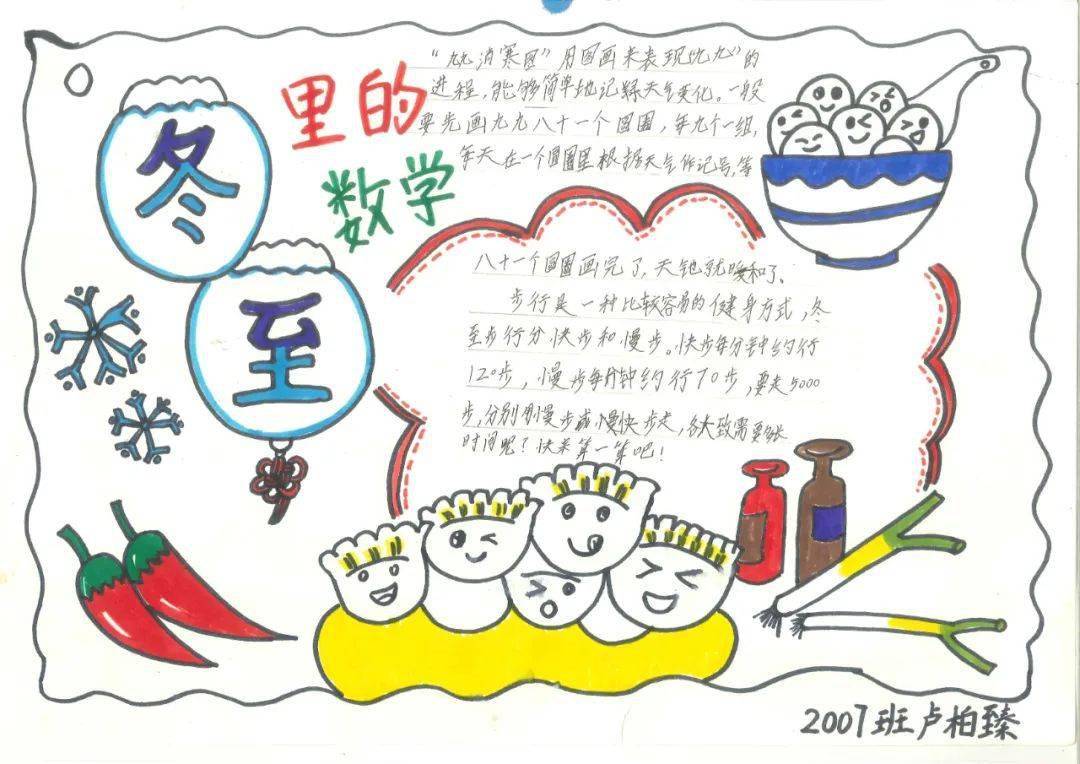 冬至
里的
数学
"九九消寒图"用图画来表现"九九"的
进程，能够简单地记録天气变化。一般
要先画九九八十一个圆圈，每九个一组，
每天在一个圆圈里根据天气作记号，等
八十一个圆圈画完了，天地就暖和了、
步行是一种比较容易的健身方式，冬
至步行分快步和慢步。快步每分钟约行
120步，慢步每分钟约行70步，要走5000
步，分别用慢步或慢快步走，各大致需要
时间呢？快来算一算吧！
2007班卢柏臻